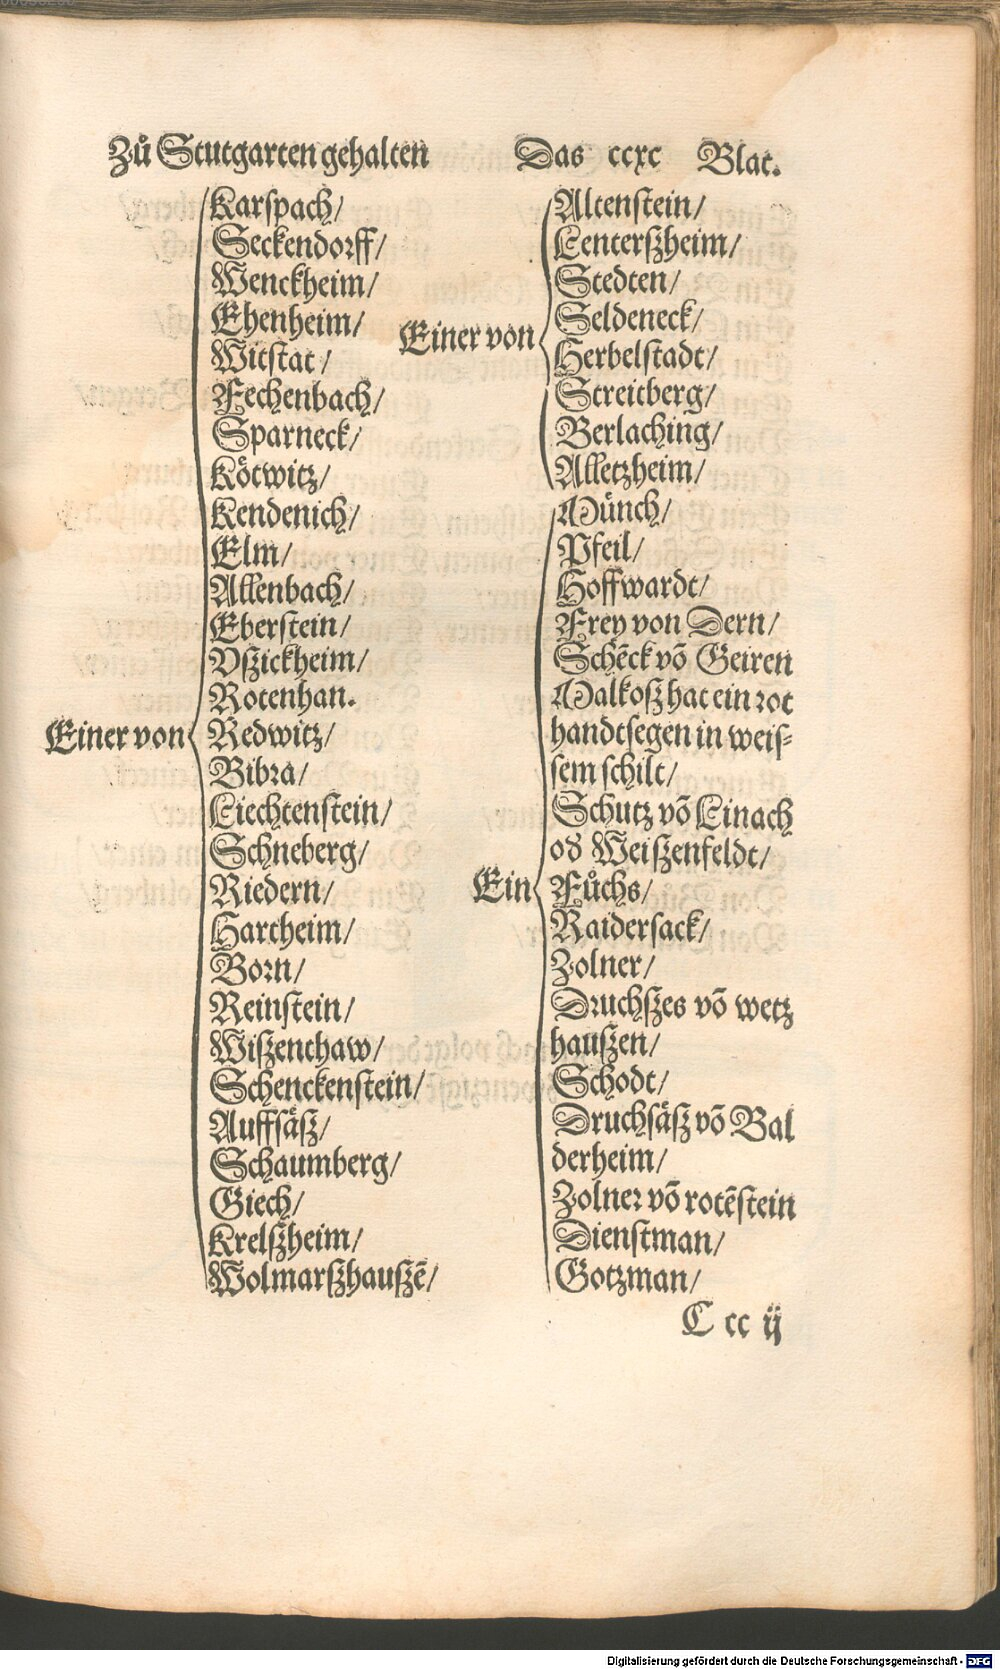 Zů Stutgarten gehalten Das ccxc Blat.
Einer von
Karſpach/
Seckendorff/
Wenckheim/
Ehenheim/
Witſtat/
Fechenbach/
Sparneck/
Kötwitz/
Kendenich/
Elm/
Allenbach/
Eberſtein/
Vſzickheim/
Rotenhan.
Redwitz/
Bibra/
Liechtenſtein/
Schneberg/
Riedern/
Hartheim/
Born/
Reinſtein/
Wiſzenthaw/
Schenckenſtein/
Auffſäſz/
Schaumberg/
Giech/
Krelſzheim/
Wolmarſzhauſzē/
Einer von
Altenſtein/
Lenterſzheim/
Stedten/
Seldeneck/
Herbelſtadt/
Streitberg/
Berlaching/
Alletzheim/
Ein
Münch/
Pfeil/
Hoffwardt/
Frey von Dern/
Schēck vō Geiren
Malkoſz hat ein rot
handtſegen in weiſ-
ſem ſchilt/
Schutz vō Linach
od Weiſzenfeldt/
Fůchs/
Raiderſack/
Zolner/
Druchſzes vō wetz
hauſzen/
Schodt/
Druchſäſz vō Bal
derheim/
Zolner vō rotēſtein
Dienſtman/
Gotzman/
C cc ij
Digitalisierung gefördert durch die Deutsche Forschungsgemeinschaft - DFG